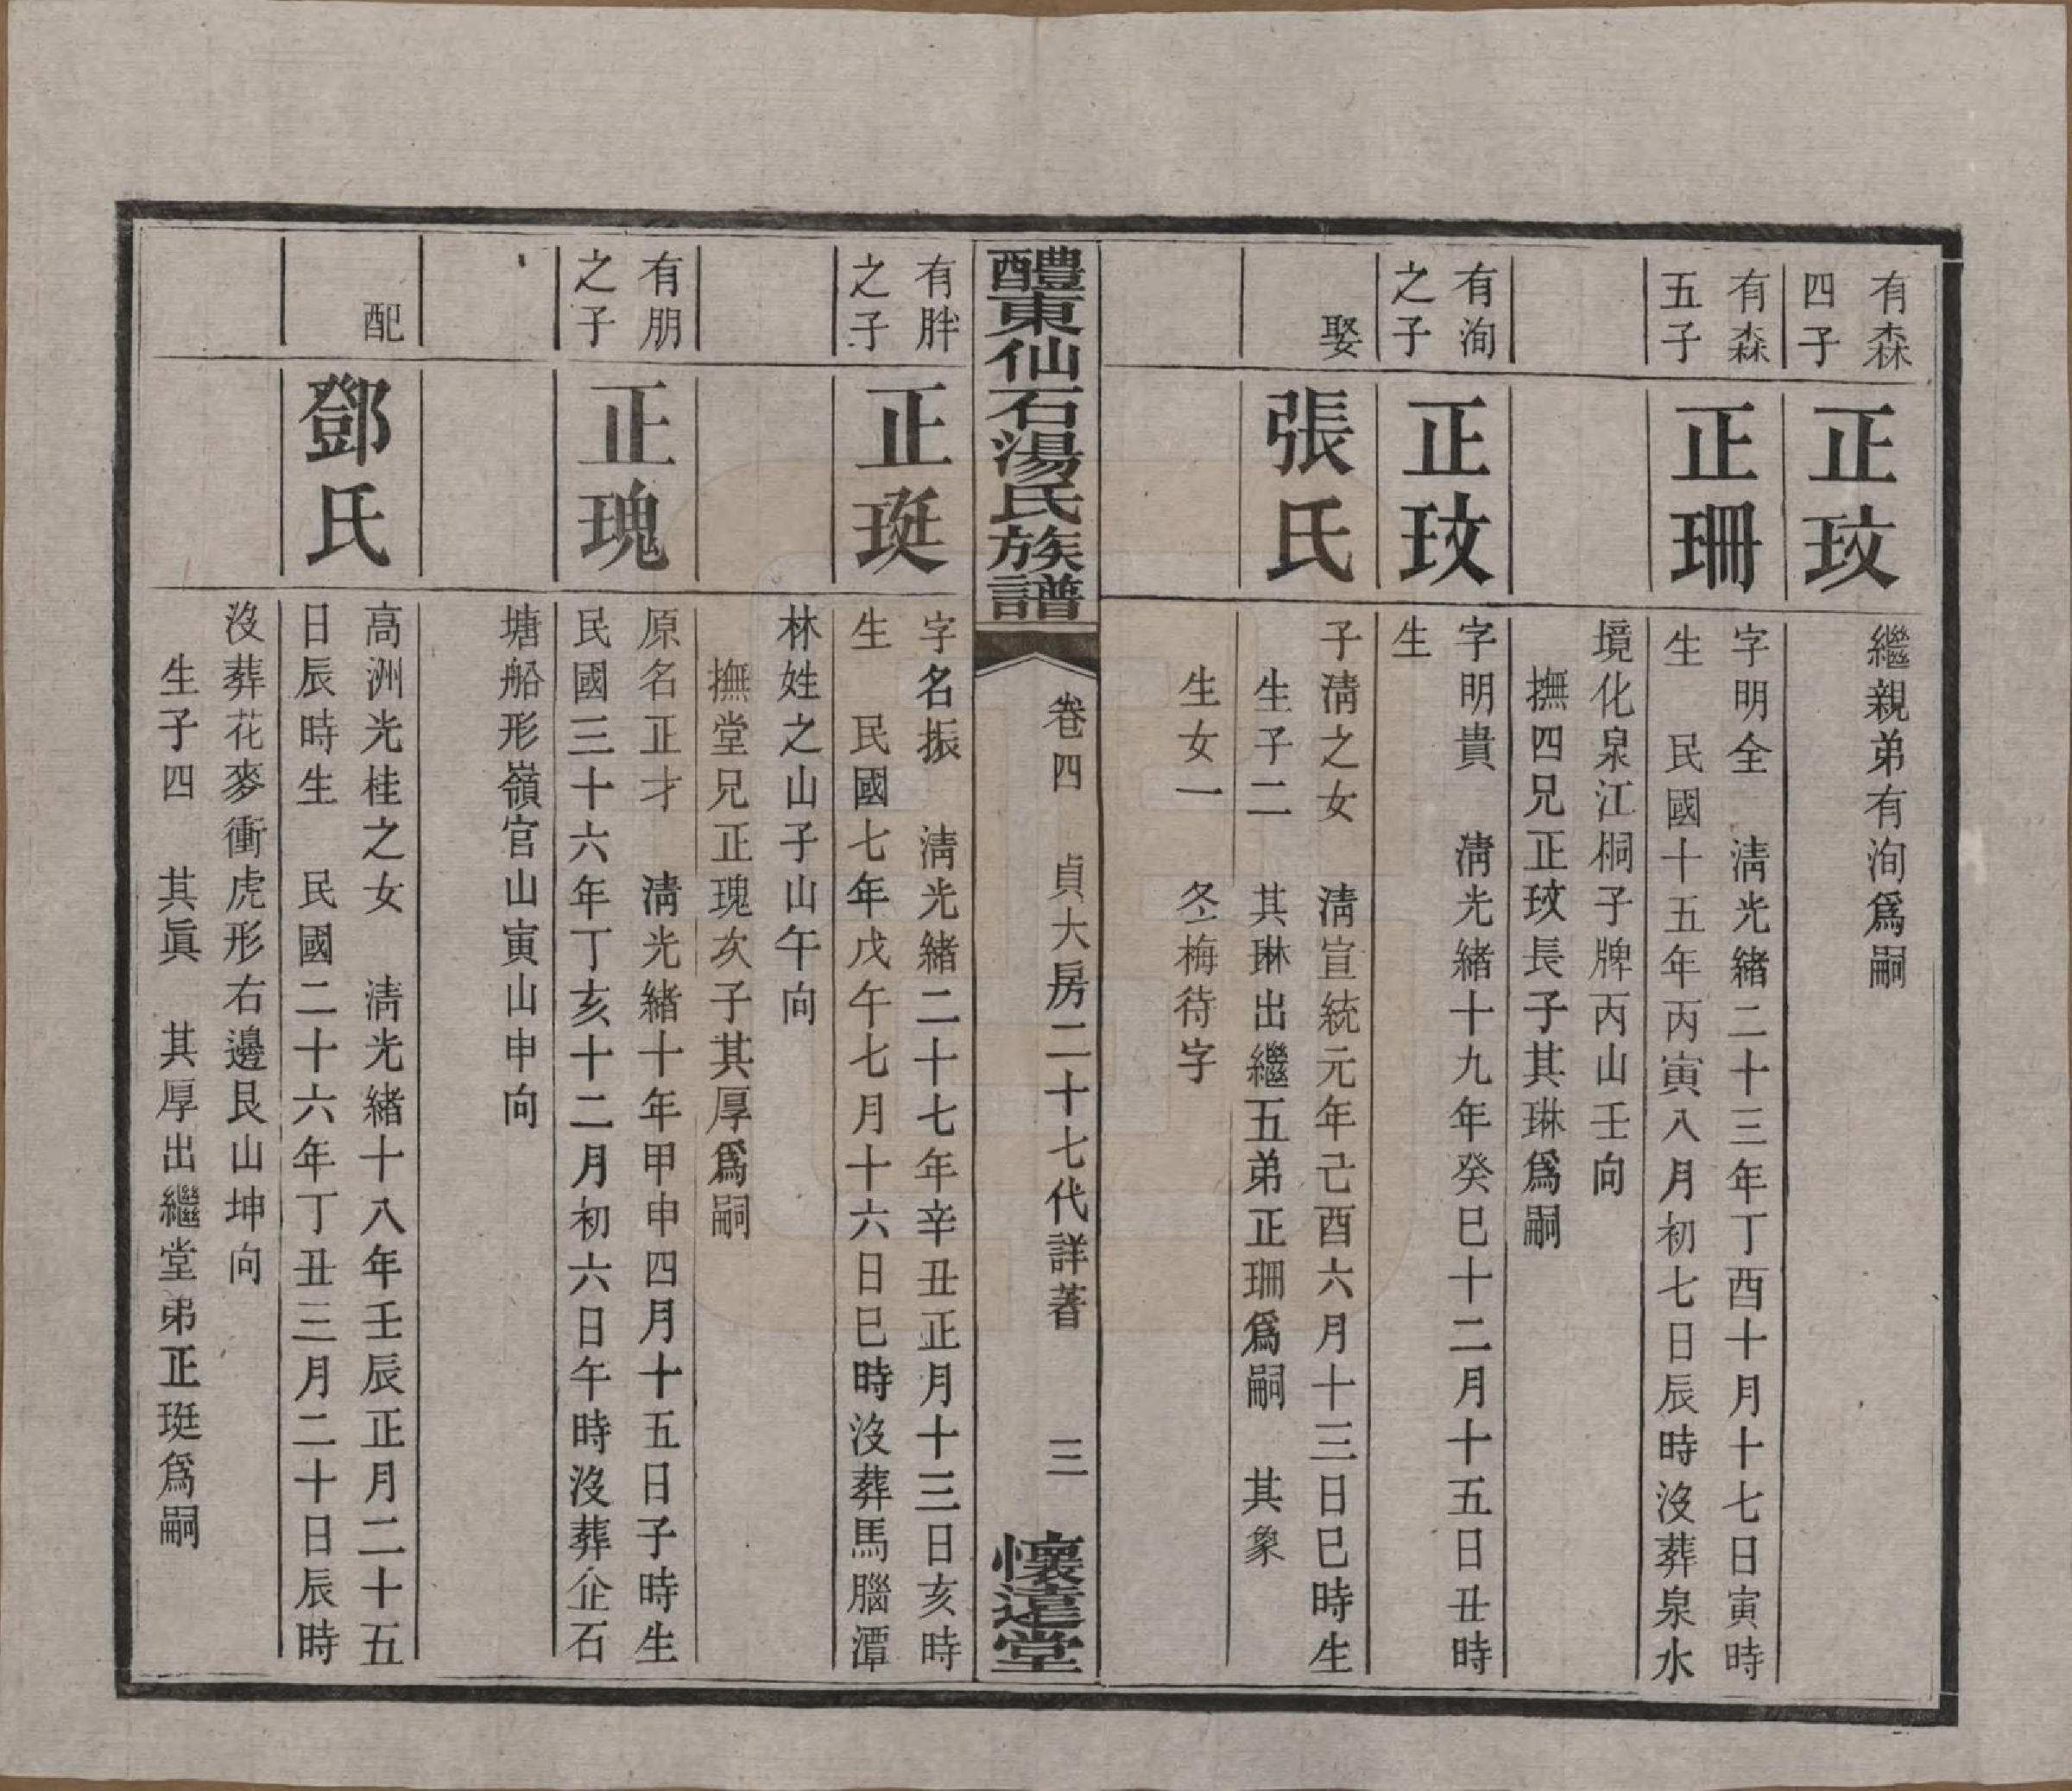 有森
四子
正玟
繼親弟有洵爲嗣
有森
五子
正珊
字明全　清光緒二十三年丁酉十月十七日寅時
生　民國十五年丙寅八月初七日辰時沒葬泉水
境化泉江桐子牌丙山壬向
撫四兄正玟長子其琳爲嗣
有洵
之子
正玟
字明貴　清光緒十九年癸巳十二月十五日丑時
生
娶
張氏
子清之女　清宣統元年己酉六月十三日巳時生
生子二　其琳出繼五弟正珊爲嗣　其象
生女一　冬梅待字
醴東仙石湯氏族譜
卷四　貞大房二十七代詳著　三
懷遠堂
有胖
之子
正珽
字名振　清光緒二十七年辛丑正月十三日亥時
生　民國七年戊午七月十六日巳時沒葬馬腦潭
林姓之山子山午向
撫堂兄正瑰次子其厚爲嗣
有朋
之子
正瑰
原名正才　清光緒十年甲申四月十五日子時生
民國三十六年丁亥十二月初六日午時沒葬企石
塘船形嶺官山寅山申向
配
鄧氏
高洲光桂之女　清光緒十八年壬辰正月二十五
日辰時生　民國二十六年丁丑三月二十日辰時
沒葬花麥衝虎形右邊艮山坤向
生子四　其眞　其厚出繼堂弟正珽爲嗣